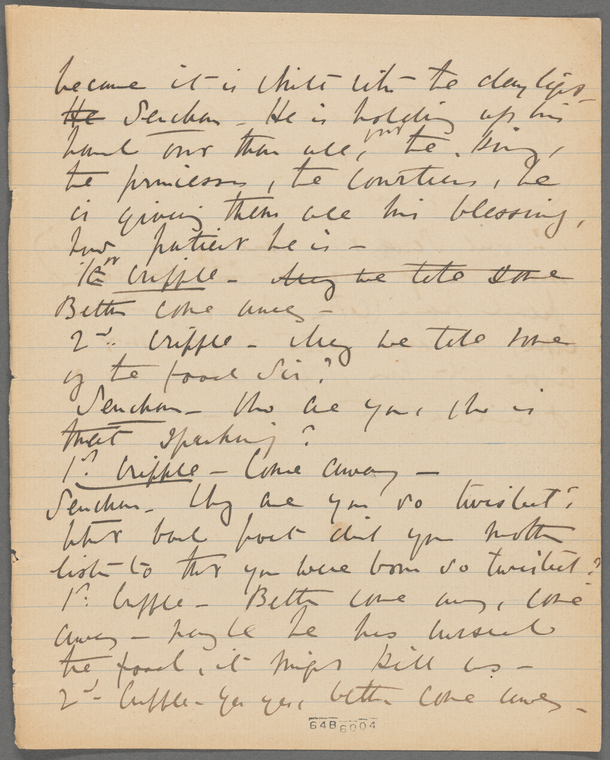 because it is white with the daylight
~~He~~ Senchan - He is holding up his
hand over them all, the King,
the princesses, the courtiers, he
is giving them all his blessing,
how patient he is -
1st Cripple - ~~May we take some~~
Better come away -
2nd Cripple - May we take some
of the food Sir?
Senchan - Who are you, who is
that speaking?
1st Cripple - Come away -
Senchan - Why are you so twisted?
What bad poet did your mother
listen to that you were born so twisted?
1st Cripple - Better come away, come
away - maybe he has cursed
the food, it might kill us -
2nd Cripple - Yes yes, better come away -
64B6004